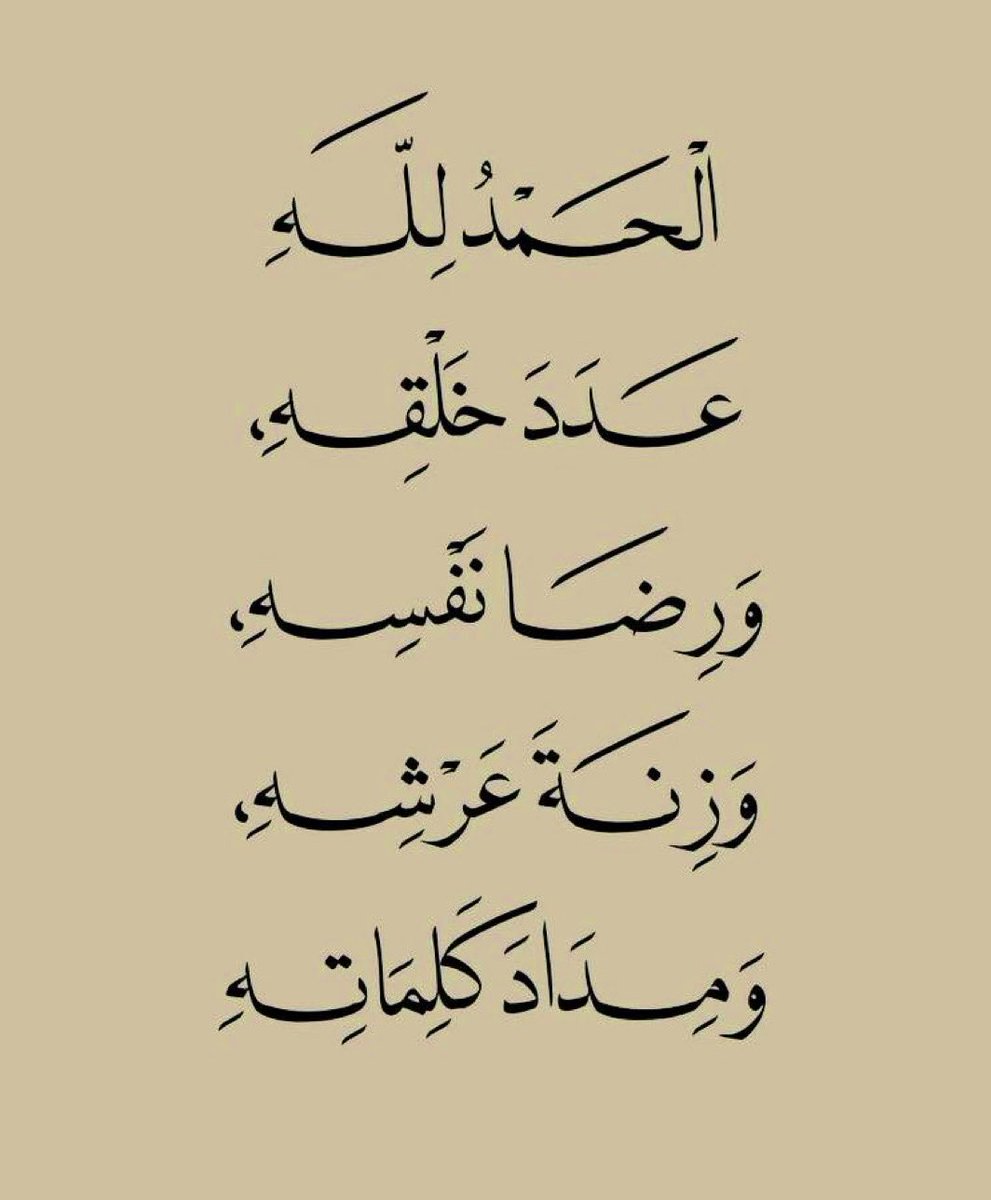 الْحَمْدُ لِلَّهِ
عَدَدَ خَلْقِهِ،
وَرِضَا نَفْسِهِ،
وَزِنَةَ عَرْشِهِ،
وَمِدَادَ كَلِمَاتِهِ